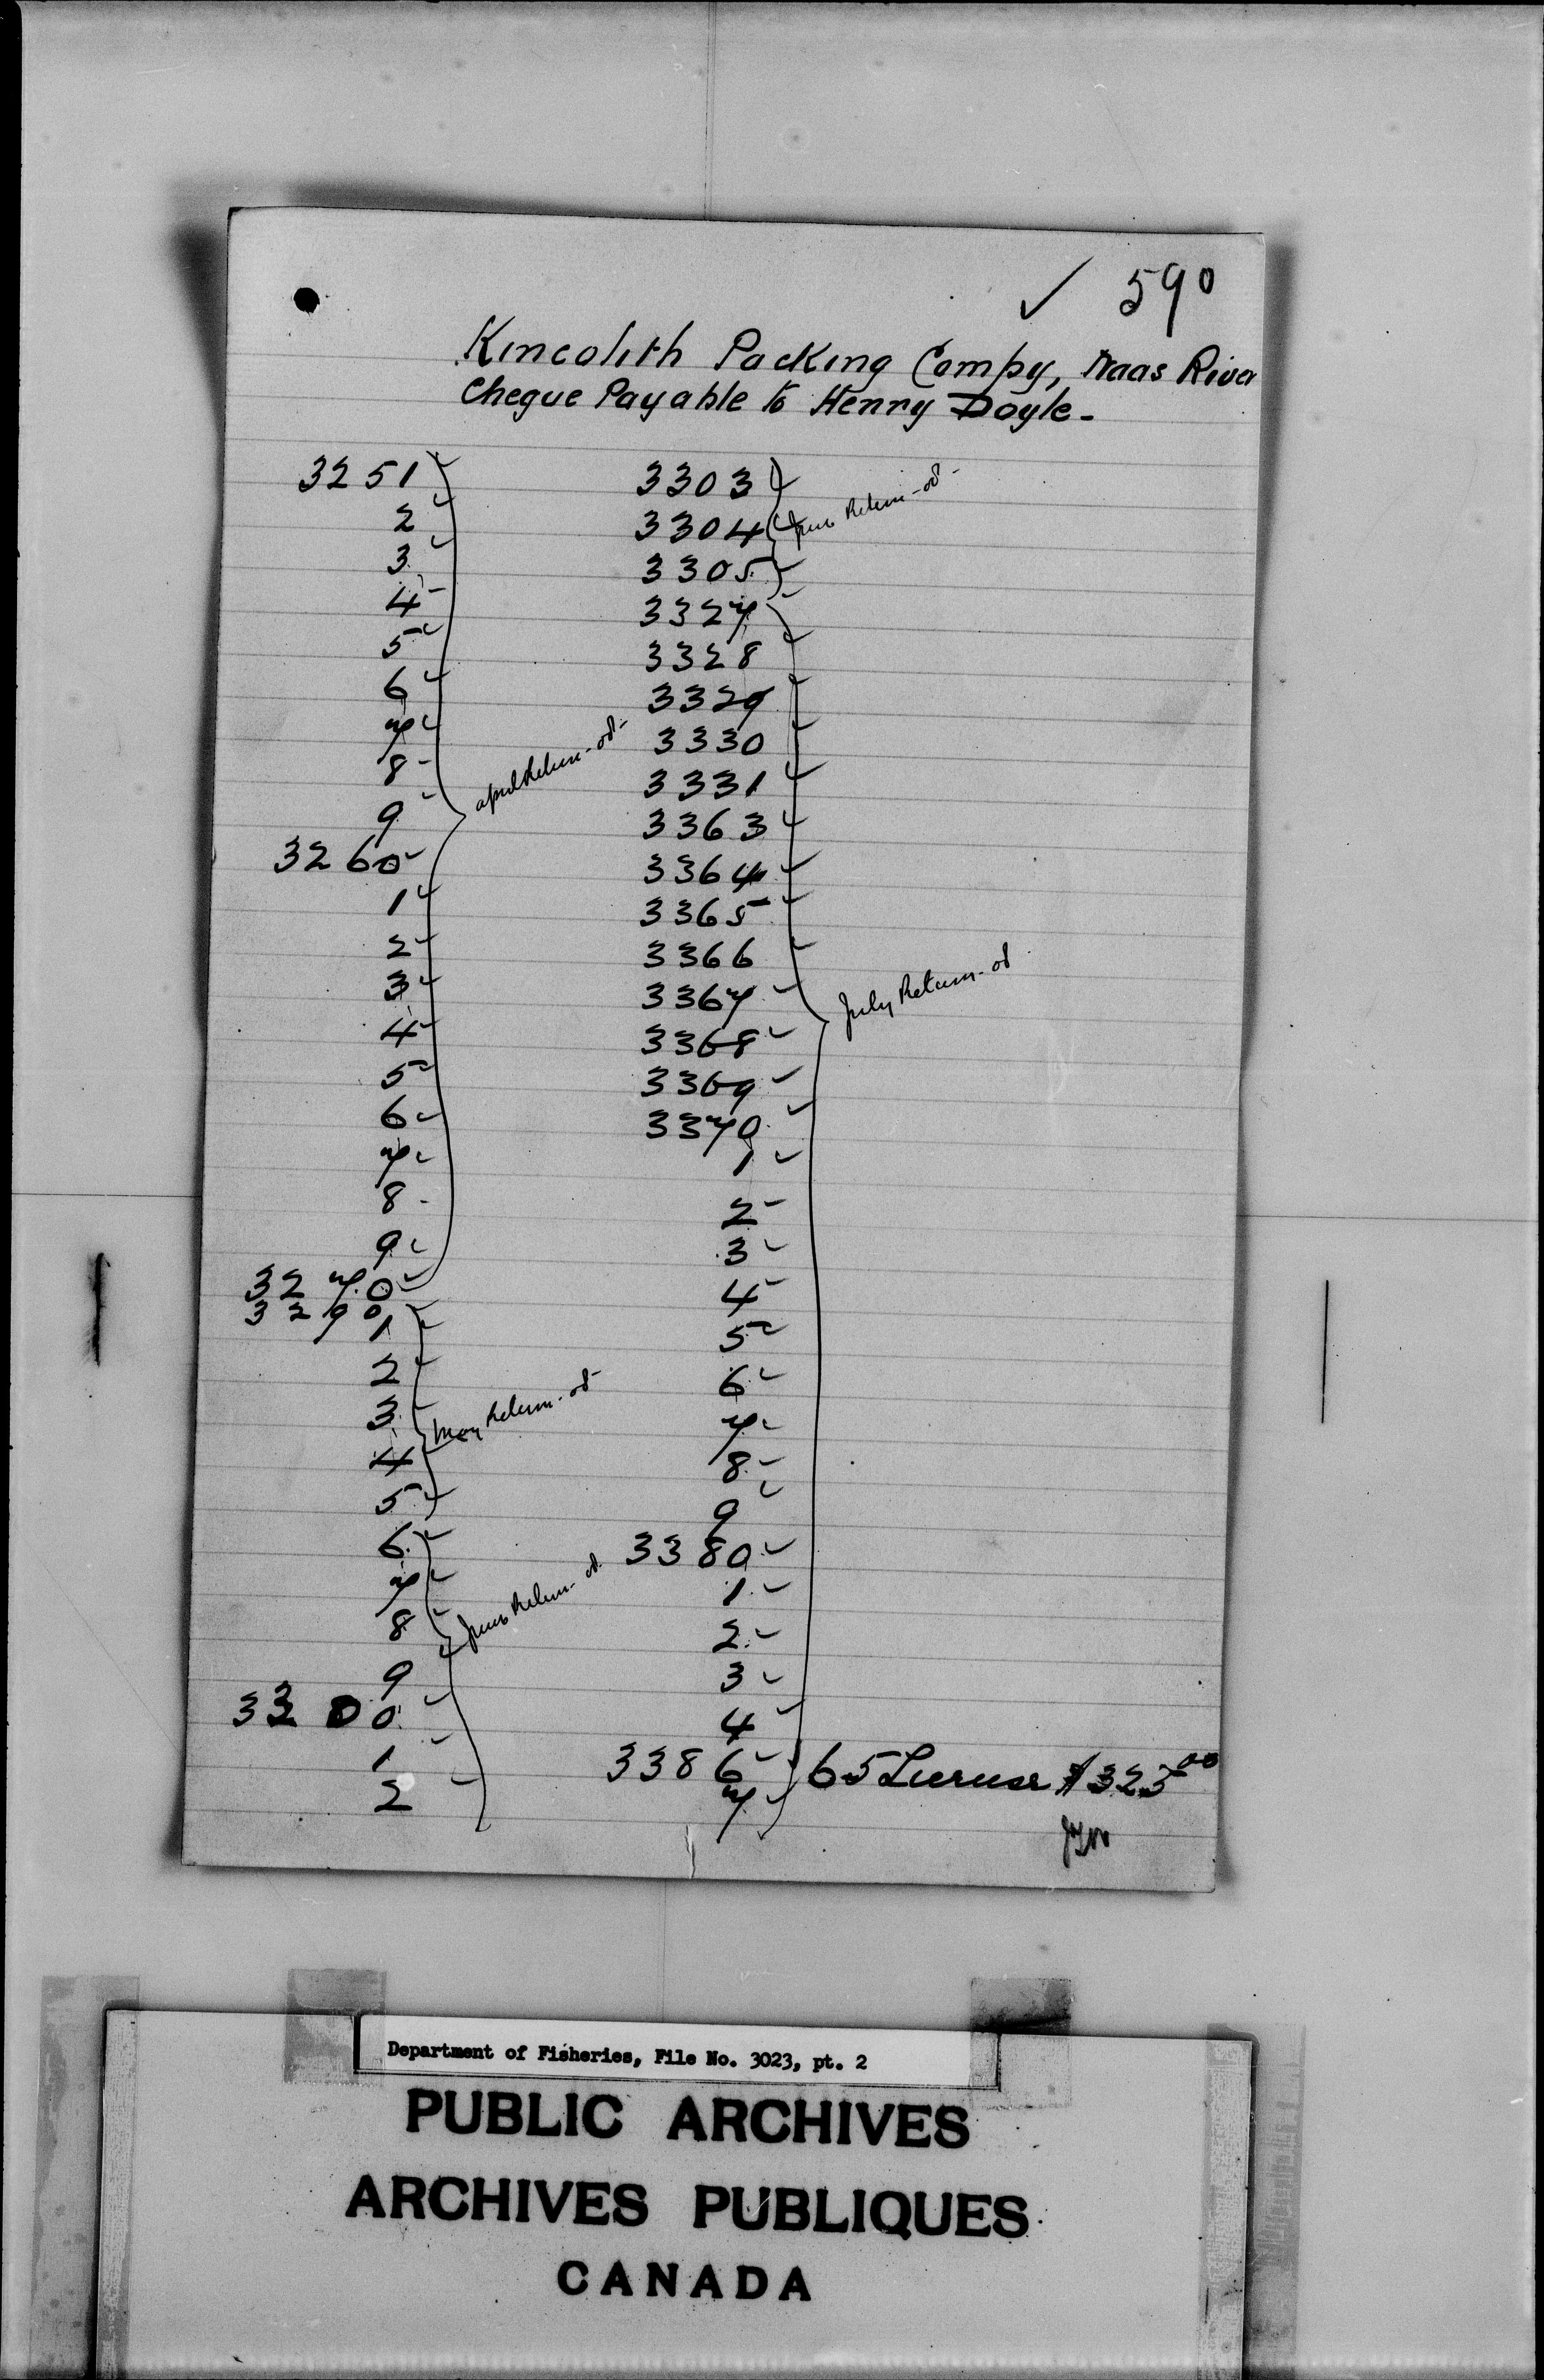 ✓ 590
Kincolith Packing Compy, Naas River
Cheque Payable to Henry Doyle-
3251
2
3
4
5
6
7
8
9
3260
1
2
3
4
5
6
7
8
9
3270
April Return - od -
3290
1
2
3
4
5
May Return - od -
6
7
8
9
3300
1
2
June Return - od
3303
3304
3305
June Return - od -
3327
3328
3329
3330
3331
3363
3364
3365
3366
3367
3368
3369
3370
1
2
3
4
5
6
7
8
9
3380
1
2
3
4
3386
7
July Return - od
65 License $325.00
Department of Fisheries, File No. 3023, pt. 2
PUBLIC ARCHIVES
ARCHIVES PUBLIQUES
CANADA